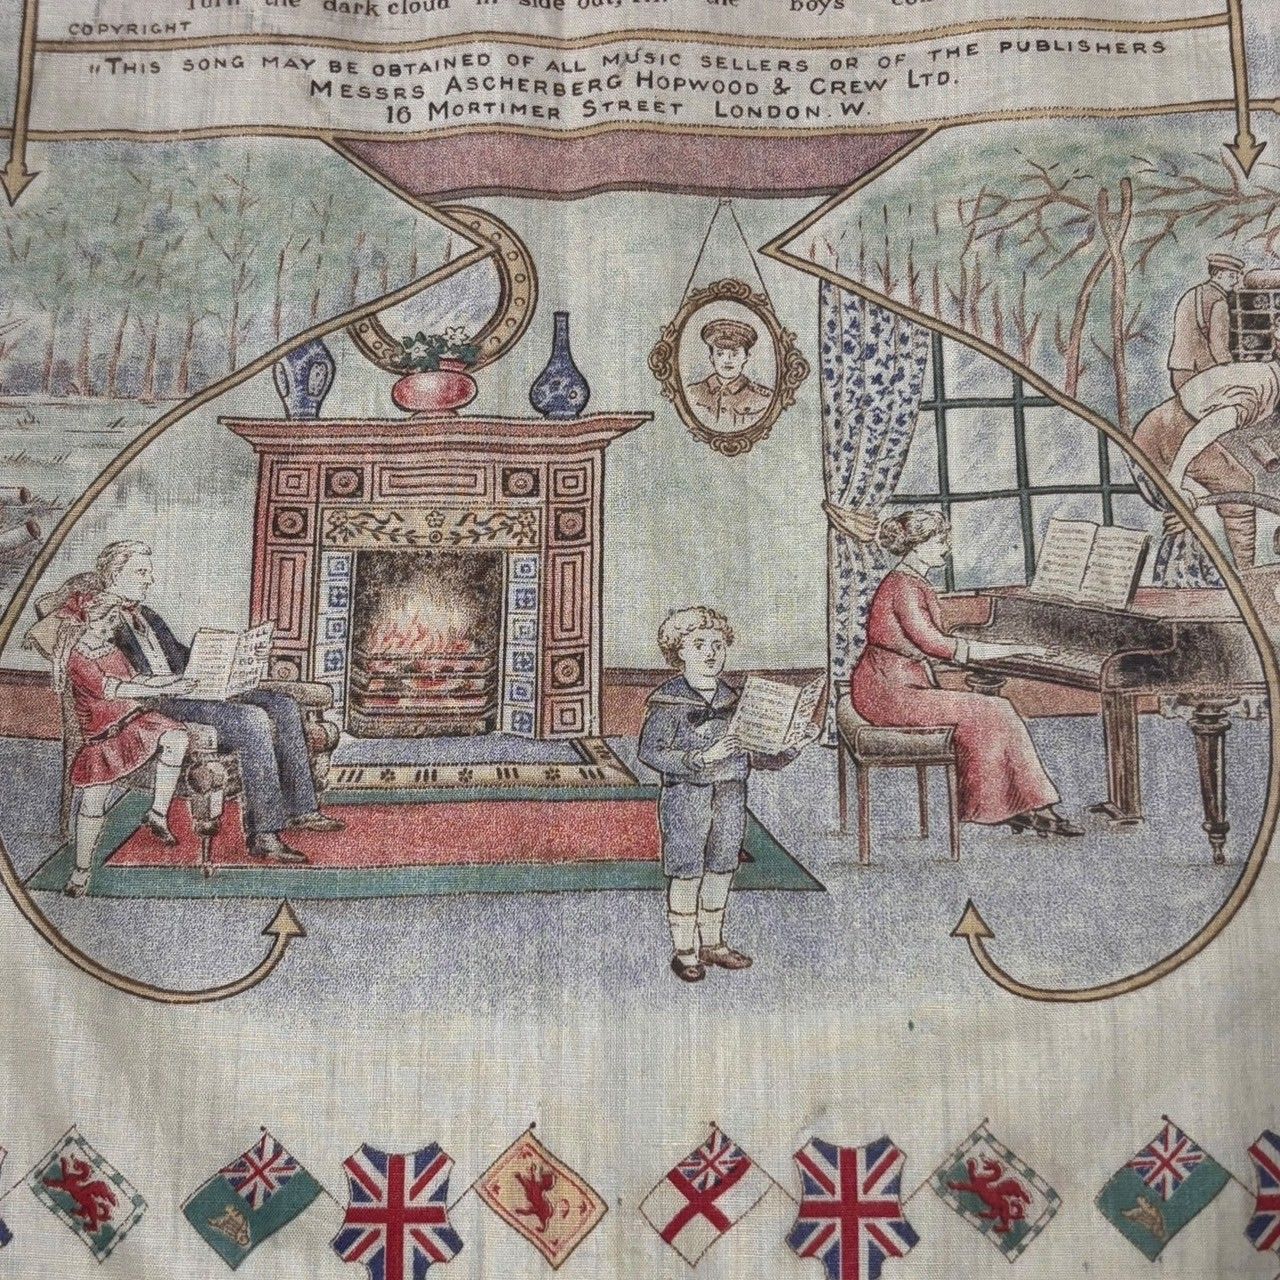 Turn the dark cloud in side out, Till the boys
COPYRIGHT
"THIS SONG MAY BE OBTAINED OF ALL MUSIC SELLERS OR OF THE PUBLISHERS
MESSRS ASCHERBERG HOPWOOD & CREW LTD.
16 MORTIMER STREET LONDON. W.